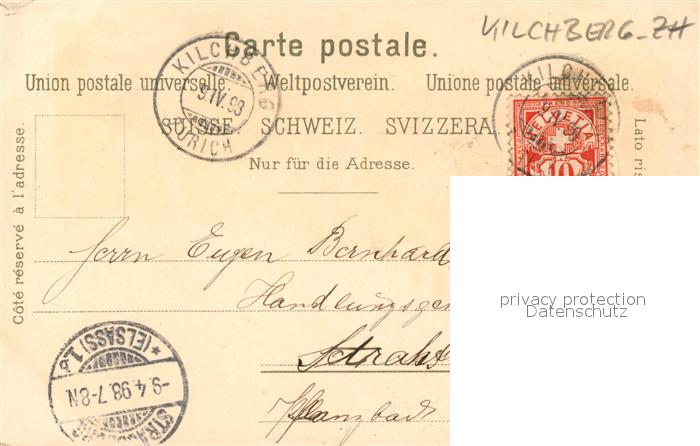 KILCHBERG-ZH
Carte postale.
Union postale universelle. Weltpostverein. Unione postale universale.
SUISSE. SCHWEIZ. SVIZZERA.
Nur für die Adresse.
KILCHBERG
9.IV.98
ZÜRICH
KILCH
HELVETIA
10
Côté réservé à l'adresse.
Lato ris
Herrn Eugen Bernhard
Handlungsge
Straß
privacy protection
Datenschutz
STRASSBURG
(ELSASS) 1.b
-9.4.98.7-8N